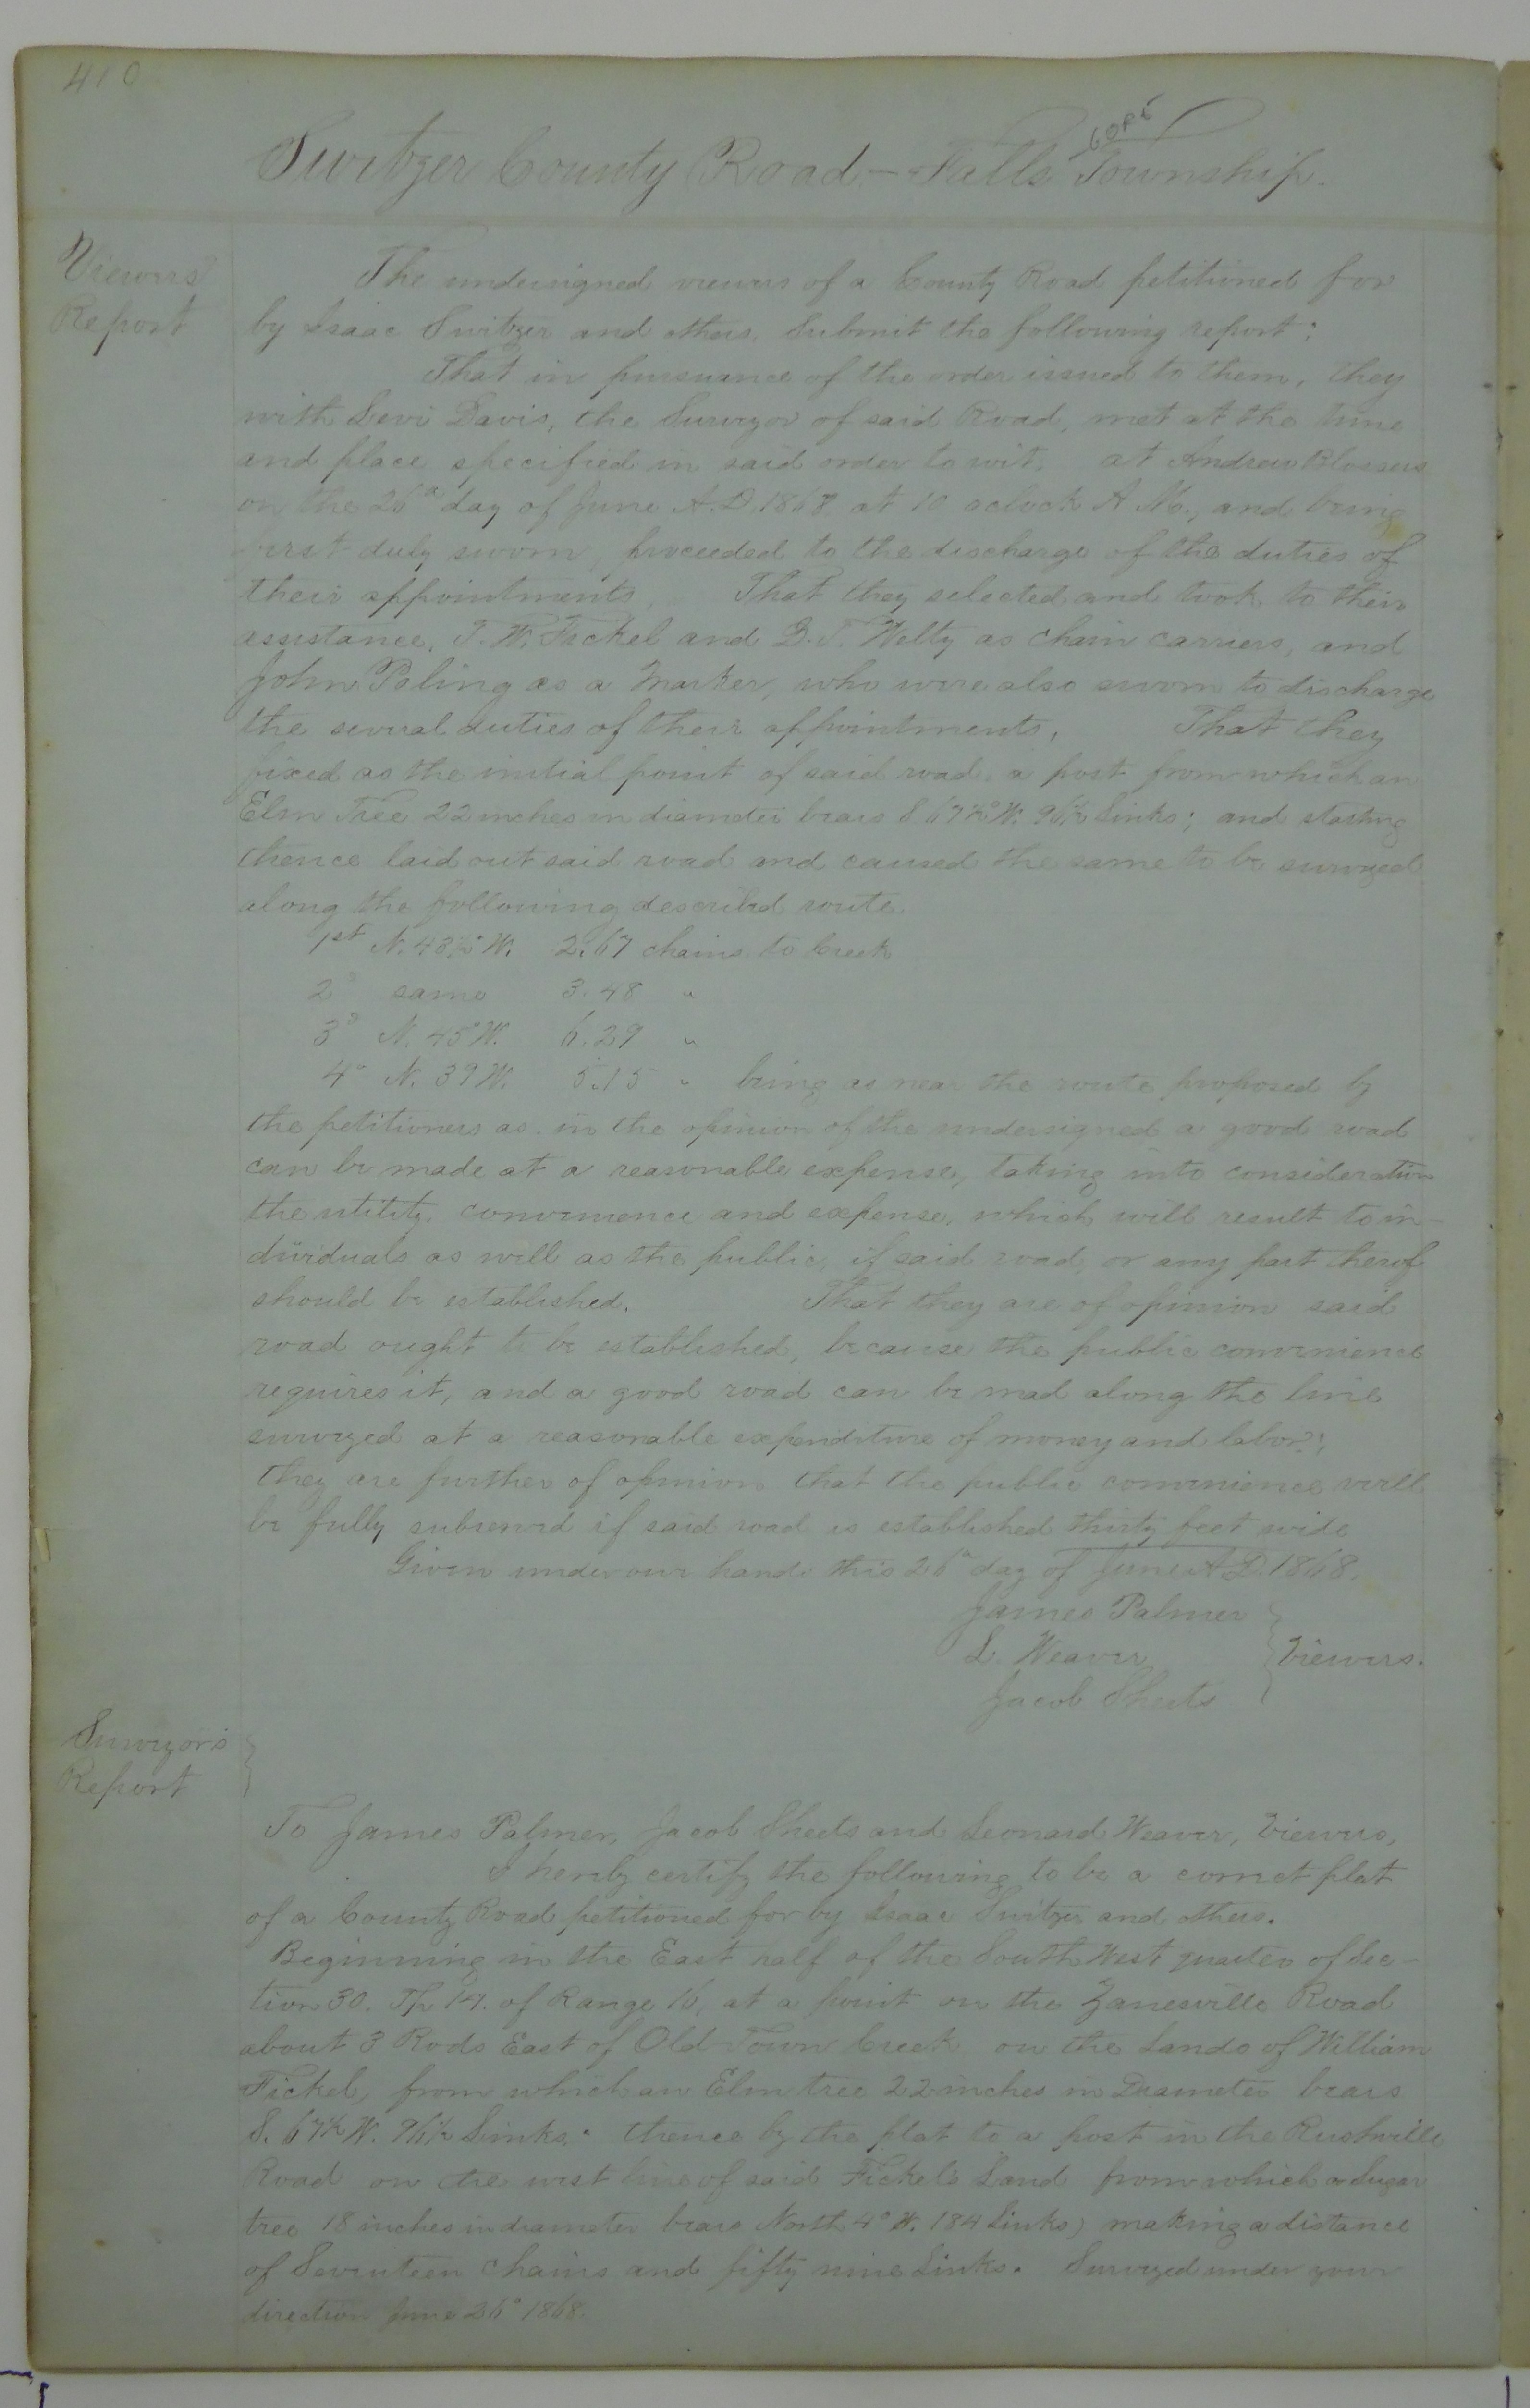 410
GORE
Switzer County Road – Falls Township.
Viewers
Report
The undersigned viewers of a County Road petitioned for
by Isaac Switzer and others. Submit the following report:
That in pursuance of the order issued to them, they
with Levi Davis, the Surveyor of said Road, met at the time
and place specified in said order to wit, at Andrew Blossers
on the 26" day of June A.D. 1868 at 10 oclock A M., and being
first duly sworn, proceeded to the discharge of the duties of
their appointments, That they selected and took to their
assistance, T. W. Fickel and B. T. Welty as chain carriers, and
John Poling as a Marker, who were also sworn to discharge
the several duties of their appointments, That they
fixed as the initial point of said road, a post from which an
Elm Tree 22 inches in diameter bears S 67½° W. 96½ Links; and starting
thence laid out said road and caused the same to be surveyed
along the following described route.
1st N. 43½° W. 2.67 chains to Creek
2d same 3.48 "
3d N. 45° W. 6.29 "
4" N. 39 W. 5.15 " being as near the route proposed by
the petitioners as in the opinion of the undersigned a good road
can be made at a reasonable expense, taking into consideration
the utility, convenience and expense, which will result to in-
dividuals as well as the public, if said road, or any part therof
should be established. That they are of opinion said
road ought to be established, because the public convenience
requires it, and a good road can be mad along the line
surveyed at a reasonable expenditure of money and labor;
they are further of opinion that the public convenience will
be fully subserved if said road is established thirty feet wide
Given under our hands this 26" day of June A.D. 1868.
James Palmer
L. Weaver
Viewers.
Jacob Sheets
Surveyor's
Report
To James Palmer, Jacob Sheets and Leonard Weaver, Viewers,
I hereby certify the following to be a correct plat
of a County Road petitioned for by Isaac Switzer and others.
Beginning in the East half of the South West quarter of Sec-
tion 30. Tp 14. of Range 16, at a point on the Zanesville Road
about 3 Rods East of Old Town Creek on the Lands of William
Fickel, from which an Elm tree 22 inches in Diameter bears
S. 67½ W. 96½ Links. thence by the plat to a post in the Rushville
Road on the west line of said Fickels Land from which a Sugar
tree 18 inches in diameter bears North 4° W. 184 Links) making a distance
of Seventeen Chains and fifty nine Links. Surveyed under your
direction June 26" 1868.